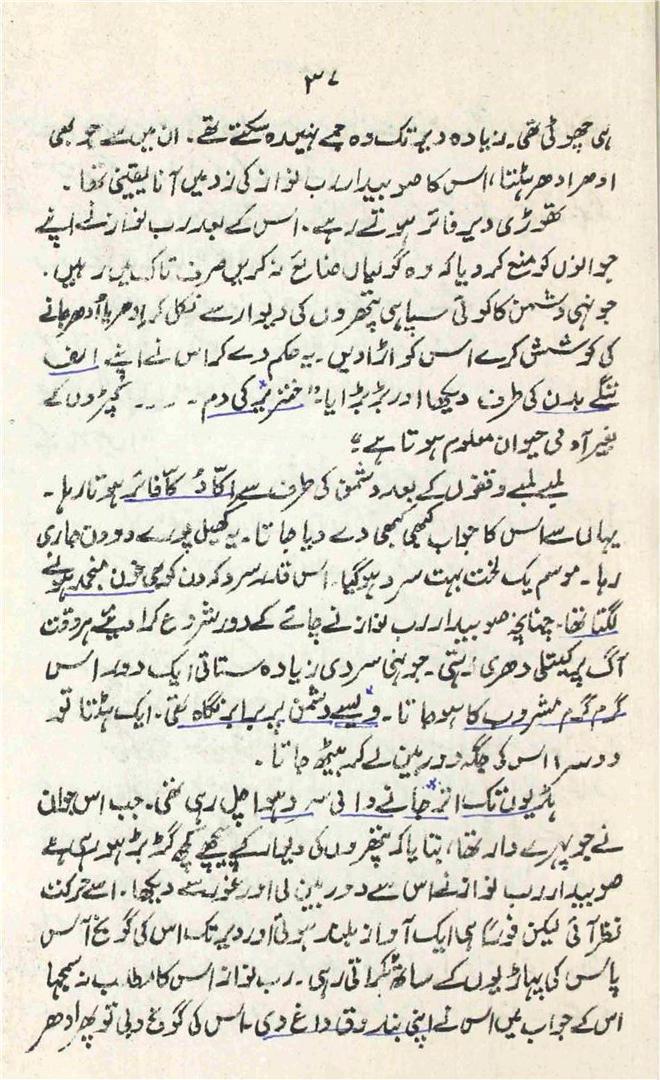 ۳۷
ہی چھوٹی تھی۔ زیادہ دیر تک وہ جمے نہیں رہ سکتے تھے۔ ان میں سے جو بھی
ادھر ادھر ہٹتا، اس کا صوبیدار رب نواز کی زد میں آنا یقینی تھا۔
تھوڑی دیر فائر ہوتے رہے۔ اس کے بعد رب نواز نے اپنے
جوانوں کو منع کر دیا کہ وہ گولیاں ضائع نہ کریں صرف تاک میں رہیں۔
جونہی دشمن کا کوئی سپاہی پتھروں کی دیوار سے نکل کر ادھر یا اُدھر جانے
کی کوشش کرے اس کو اڑا دیں۔ یہ حکم دے کر اس نے اپنے الف
ننگے بدن کی طرف دیکھا اور بڑبڑایا: "خنزیر کی دم۔ ۔۔۔ کپڑوں کے
بغیر آدمی حیوان معلوم ہوتا ہے"
لمبے لمبے وقفوں کے بعد دشمن کی طرف سے اکّا دُکّا فائر ہوتا رہا۔
یہاں سے اس کا جواب کبھی کبھی دے دیا جاتا۔ یہ کھیل پورے دو دن جاری
رہا۔ موسم یک لخت بہت سرد ہو گیا۔ اس قدر سرد کہ دن کو بھی خون منجمد ہونے
لگتا تھا۔ چنانچہ صوبیدار رب نواز نے چائے کے دور شروع کرا دیئے ہر وقت
آگ پر کیتلی دھری رہتی۔ جونہی سردی زیادہ ستاتی ایک دور اس
گرم گرم مشروب کا ہو جاتا۔ ویسے دشمن پر برابر نگاہ تھی۔ ایک ہٹتا تو
دوسرا اس کی جگہ دوربین لے کر بیٹھ جاتا۔
ہڈیوں تک اتر جانے والی سرد ہوا چل رہی تھی۔ جب اس جوان
نے جو پہرے دار تھا، بتایا کہ پتھروں کی دیوار کے پیچھے کچھ گڑبڑ ہو رہی ہے
صوبیدار رب نواز نے اس سے دوربین لی اور غور سے دیکھا۔ اسے حرکت
نظر نہ آئی لیکن فوراً ہی ایک آواز بلند ہوئی اور دیر تک اس کی گونج آس
پاس کی پہاڑیوں کے ساتھ ٹکراتی رہی۔ رب نواز اس کا مطلب نہ سمجھا
اس کے جواب میں اس نے اپنی بندوق داغ دی۔ اس کی گونج دبی تو پھر ادھر